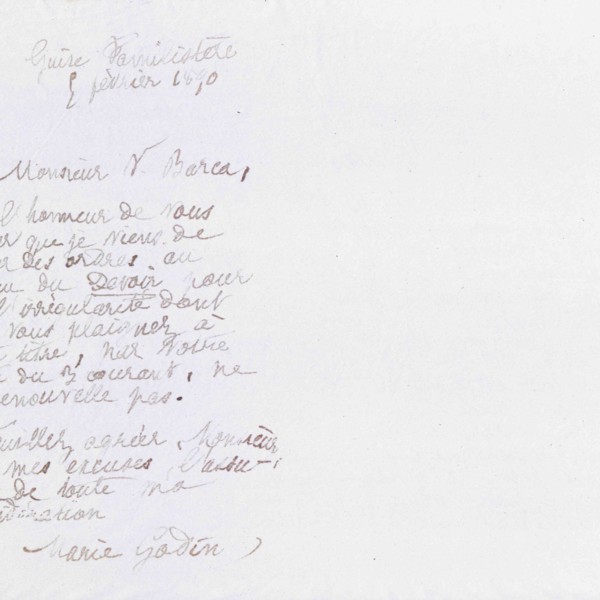 Guise Familistère
5 février 1890
Monsieur V. Barca,
l'honneur de vous
er que je viens de
er des ordres au
au du Devoir pour
l'irrégularité dont
vous plaignez à
titre, par votre
du 3 courant, ne
enouvelle pas.
euillez agréer, Monsieur
mes excuses l'assu-
de toute ma
idération
Marie Godin